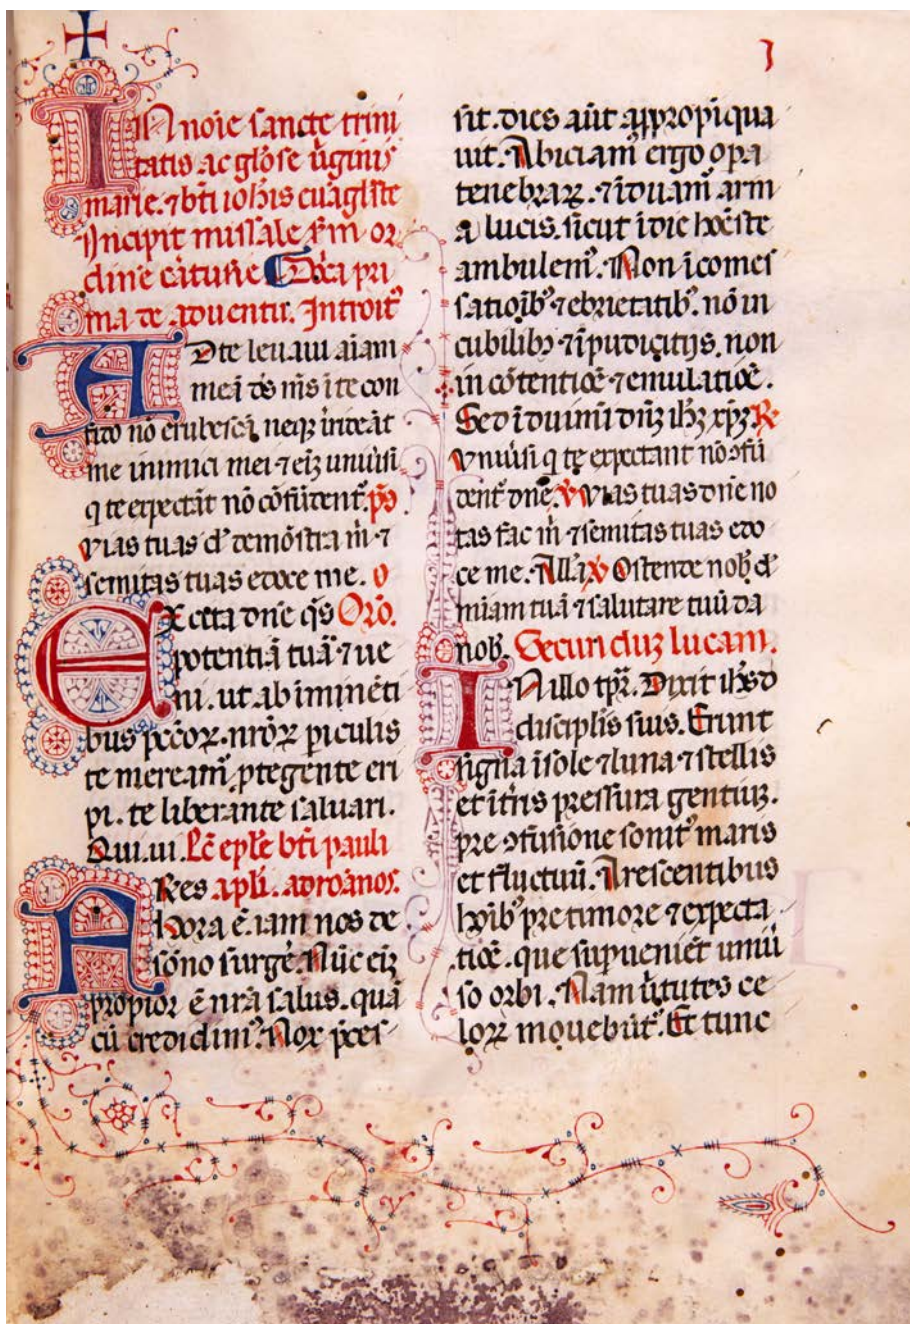 I
IN noīe sancte trini
tatis ac glōse ūginis
marie. ⁊ bt̄i ioh̄is euāgl̄iste
Incipit missale sm̄ or
dinē
Dn̄ica pri
ma de aduentu. Introitꝰ
AD te leuaui aīam
meā ds̄ m̄s ī te con
fido nō erubescā, neqꝫ irrideāt
me inimici mei ⁊ eī unīusi
q te expectāt nō cōfūdent᷑. ps̄
Vias tuas dn̄e demōstra m̄ ⁊
semitas tuas edoce me. O
Excita dn̄e qs̄ Orō.
potentiā tuā ⁊ ue
ni. ut ab iminēti
bus pēcoꝝ. nrōꝝ piculis
te meream̄ ꝓtegente eri
pi. te liberante saluari.
Qui. ui. Lc̄ ep̄le bt̄i pauli
FRES apl̄i. ad romanos.
Hora ē. iam nos de
sōno surgē. Nūc eī
propior ē nrā salus. quā
cū credidimꝰ. Nox p̄ces
sit. dies aūt appropīqua
uit. Abiciamꝰ ergo opa
tenebraꝝ. ⁊ īduam̄ arm
a lucis. sicut ī die hōeste
ambulemꝰ. Non ī comes
satiōibꝰ ⁊ ebrietatibꝰ. nō in
cubilibꝫ ⁊ īpudicitijs. non
in cōtentiōe ⁊ emulatiōe.
Sed īduimīi dn̄ꝫ ih̄ꝫ xp̄ꝫ R
Vniūsi q te expectant nō ↄfū
dent᷑ dn̄e. V Vias tuas dn̄e no
tas fac m̄ ⁊ semitas tuas edo
ce me. All'a V Ostende nob̄ dn̄e
miam tuā ⁊ salutare tuū da
nob̄. Secunduꝫ lucam.
IN illo tp̄r. Dixit ih̄s d
discipl̄is suis. Erunt
signa ī sole ⁊ luna ⁊ stellis
et ī tr̄is pressura gentiuꝫ.
pre ↄfusione sonitꝰ maris
et fluctuū. Arescentibus
hoībꝰ pre timore ⁊ expecta
tiōe. que supueniēt uniū
so orbi. Nam ūtutes ce
loꝝ mouebūt᷑. Et tunc